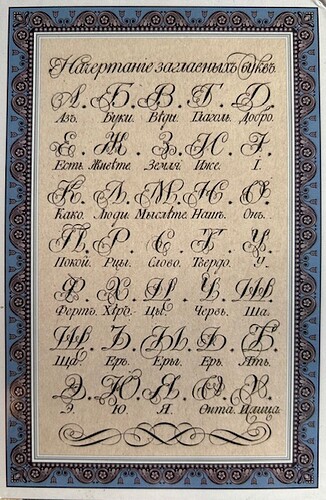 Начертаніе заглавныхъ буквъ
А. Б. В. Г. Д.
Азъ. Буки. Вѣди. Глаголь. Добро.
Е. Ж. З. И. І.
Есть. Живѣте. Земля. Иже. І.
К. Л. М. Н. О.
Како. Люди. Мыслѣте. Нашъ. Онъ.
П. Р. С. Т. У.
Покой. Рцы. Слово. Твердо. У.
Ф. Х. Ц. Ч. Ш.
Фертъ. Хѣръ. Цы. Червь. Ша.
Щ. Ъ. Ы. Ь. Ѣ.
Ща. Еръ. Еры. Ерь. Ять.
Э. Ю. Я. Ѳ. Ѵ.
Э. Ю. Я. Ѳита. Ижица.